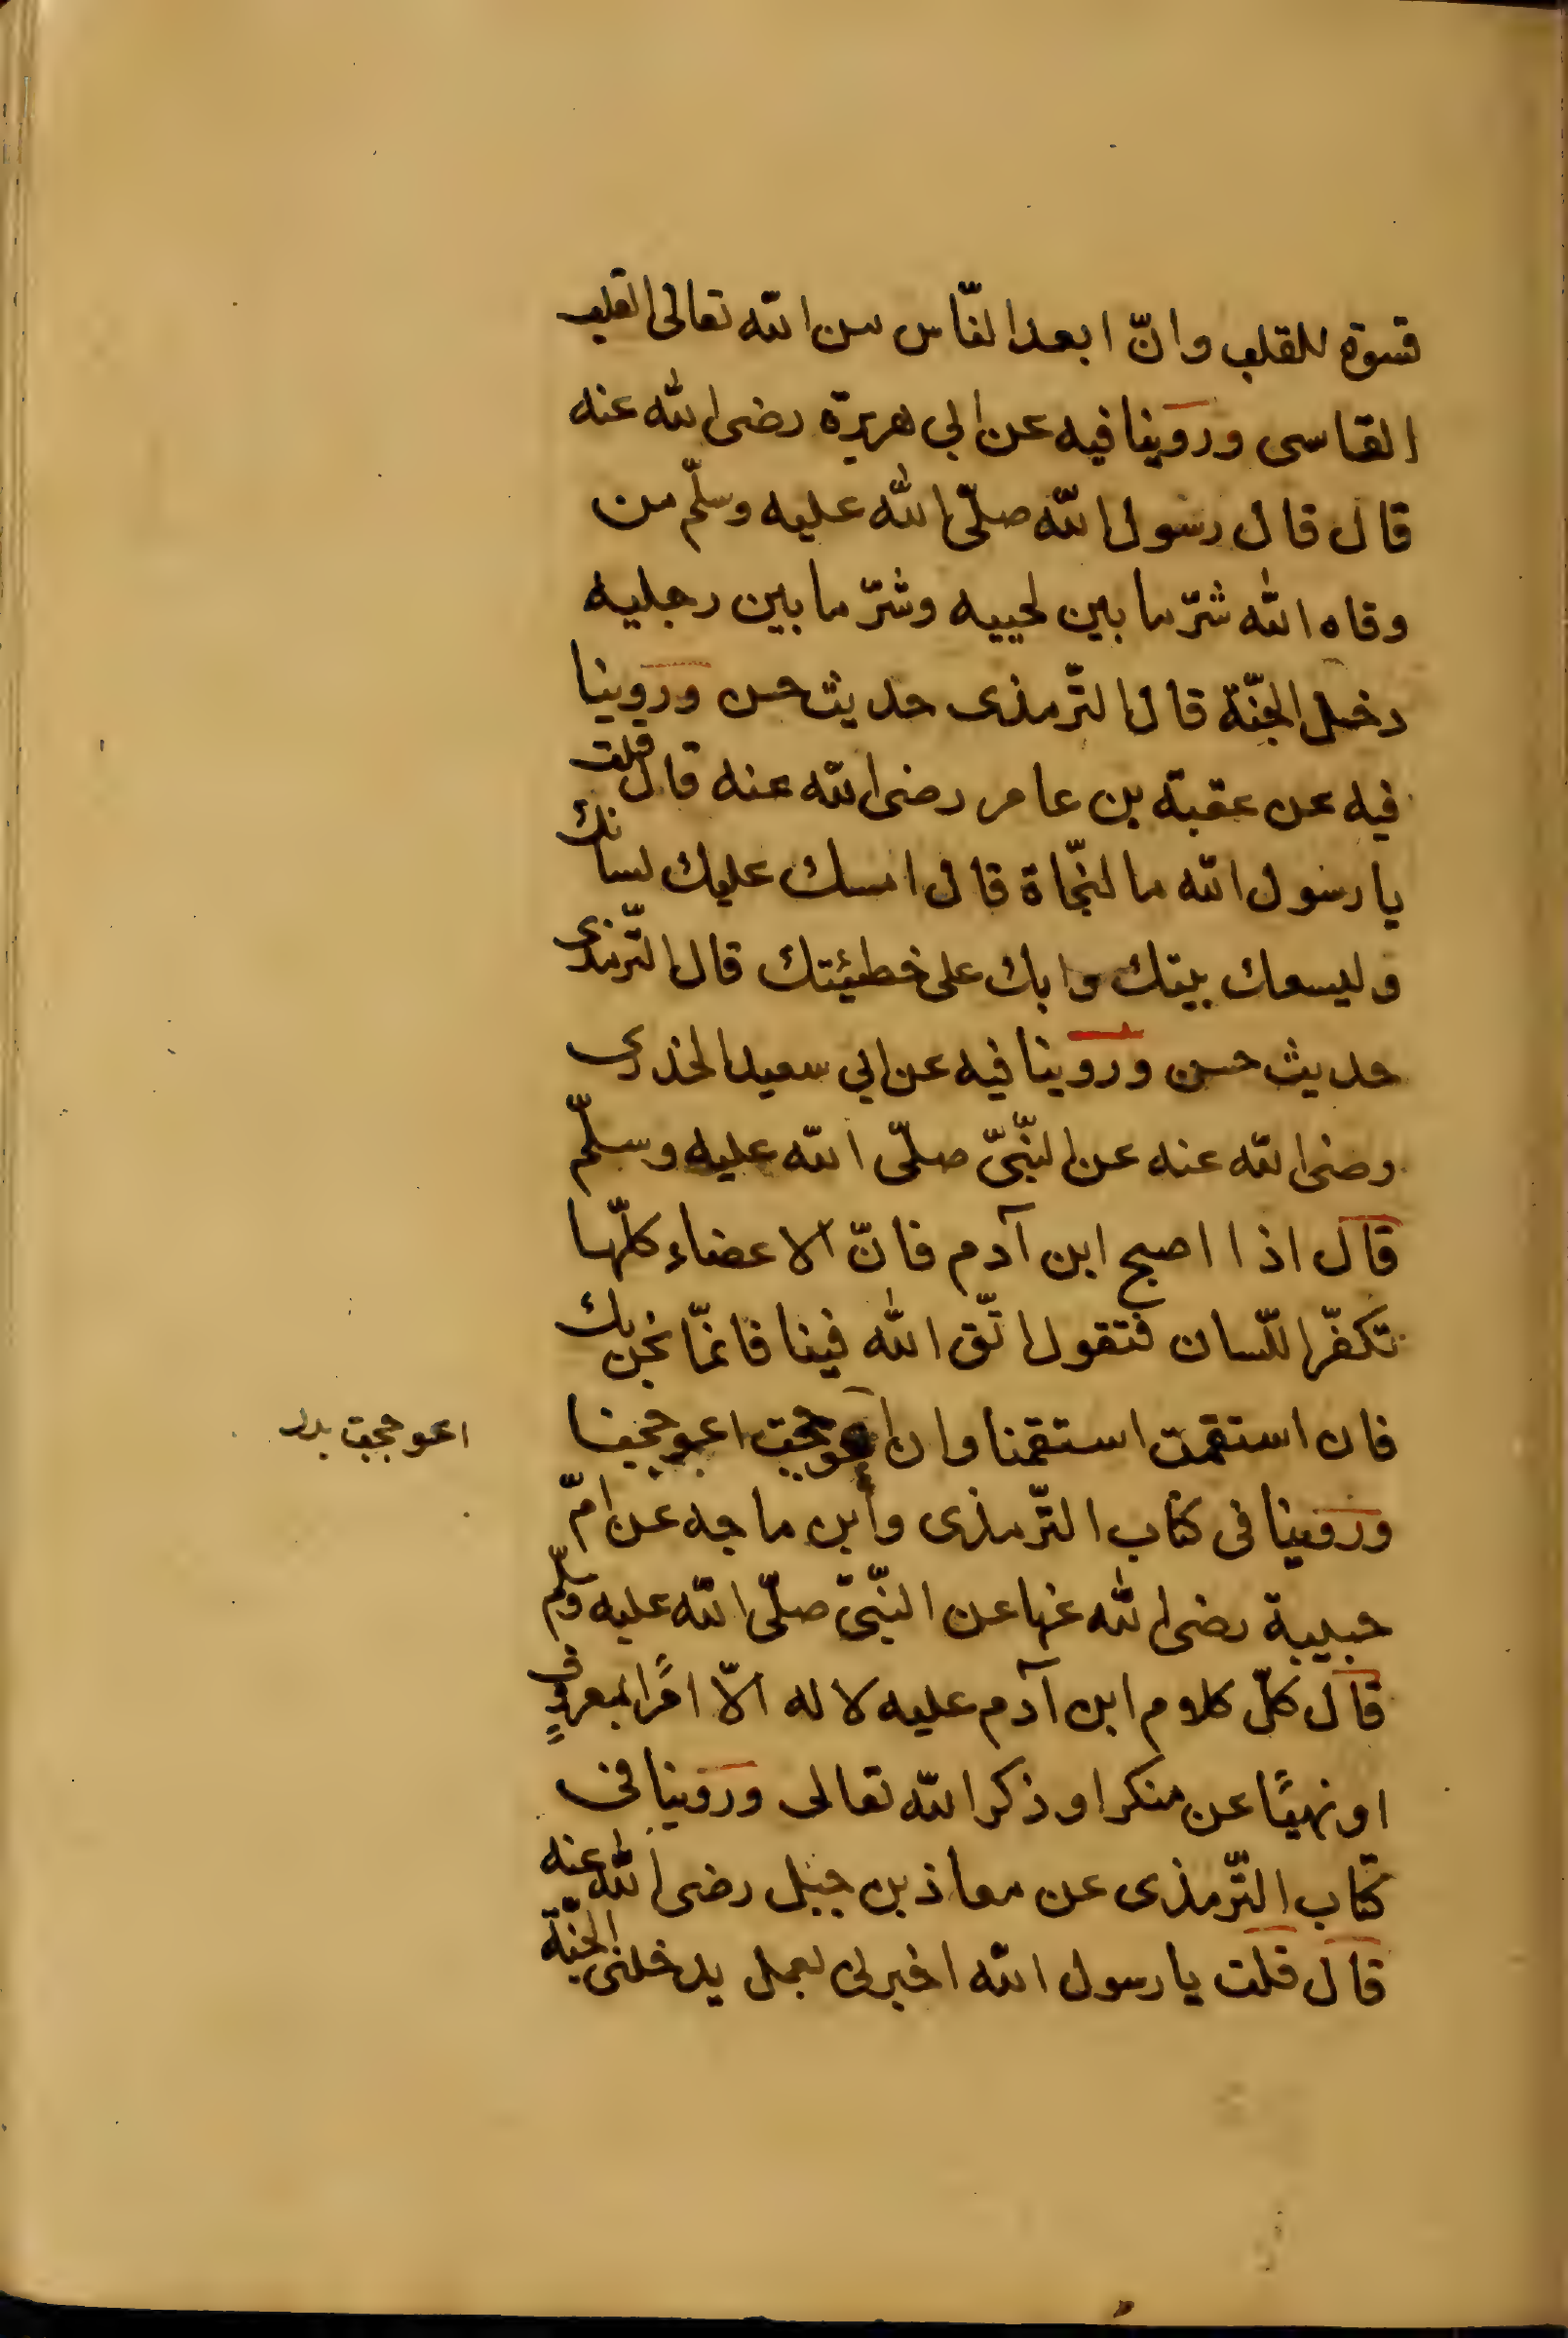 قسوة للقلب وانّ ابعد النّاس من الله تعالى القلب
القاسى وروينا فيه عن ابي هريرة رضى الله عنه
قال قال رسول الله صلّى الله عليه وسلّم من
وقاه الله شرّ ما بين لحييه وشرّ ما بين رجليه
دخل الجنّة قال التّرمذى حديث حسن وروينا
فيه عن عقبة بن عامر رضى الله عنه قال قلت
يا رسول الله ما النّجاة قال امسك عليك لسانك
وليسعك بيتك وابك على خطيئتك قال التّرمذى
حديث حسن وروينا فيه عن ابي سعيد الخدرى
رضى الله عنه عن النّبىّ صلّى الله عليه وسلّم
قال اذا اصبح ابن آدم فانّ الاعضاء كلّها
تكفّر اللّسان فتقول اتّق الله فينا فانمّا نحن بك
فان استقمت استقمنا وان اعوججت اعوججنا
اعوججت بدل
وروينا فى كتاب التّرمذى وابن ماجه عن امّ
حبيبة رضى الله عنها عن النّبىّ صلّى الله عليه وسلّم
قال كلّ كلام ابن آدم عليه لا له الّا امرًا بمعروفٍ
او نهيًا عن منكر او ذكر الله تعالى وروينا فى
كتاب التّرمذى عن معاذ بن جبل رضى الله عنه
قال قلت يا رسول الله اخبرنى بعمل يدخلنى الجنّة